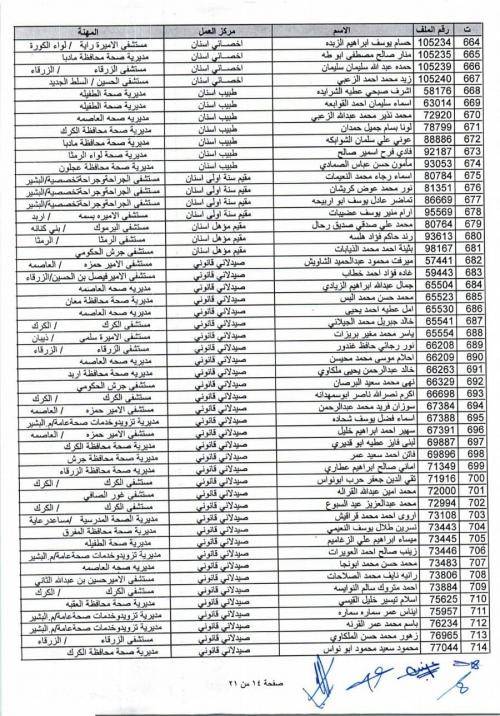 ت رقم الملف الاسم مركز العمل المهنة
664 105234 حسام يوسف ابراهيم الزبده اخصائي اسنان مستشفى الاميرة راية / لواء الكورة
665 105235 منار صالح مصطفى ابو طه اخصائي اسنان مديرية صحة محافظة مادبا
666 105239 حمده عبد الله سليمان سليمان اخصائي اسنان مستشفى الزرقاء / الزرقاء
667 105240 زيد محمد احمد الزعبي اخصائي اسنان مستشفى الحسين / السلط الجديد
668 58176 اشرف صبحي عطيه الشرايده طبيب اسنان مديرية صحة الطفيله
669 63014 اسماء سليمان احمد القوابعه طبيب اسنان مديرية صحة محافظة مادبا
670 72920 محمد نذير محمد عبدالله الزعبي طبيب اسنان مديريه صحه العاصمه
671 78799 لونا بسام جميل حمدان طبيب اسنان مديرية صحة محافظة الكرك
672 88886 عوني علي سلمان الشوابكه طبيب اسنان مديريه صحه العاصمه
673 92187 فادي فرح اسمير صالح طبيب اسنان مديرية صحة لواء الرمثا
674 93053 مأمون حسن عباس الصمادي طبيب اسنان مديرية صحة محافظة عجلون
675 80784 اسماء رجاء محمد النعيمات مقيم سنة اولى اسنان مستشفى الجراحةوجراحةتخصصية/البشير
676 81351 نور محمد عوض كريشان مقيم سنة اولى اسنان مستشفى الجراحةوجراحةتخصصية/البشير
677 86669 تماضر عادل يوسف ابو اربيحه مقيم سنة اولى اسنان مستشفى الجراحةوجراحةتخصصية/البشير
678 95569 ارام منير يوسف عضيبات مقيم سنة اولى اسنان مستشفى الاميره بسمه / اربد
679 80764 محمد علي صدقي صديق رحال مقيم مؤهل اسنان مستشفى اليرموك / بني كنانه
680 93613 رند حاكم فؤاد هلسه مقيم مؤهل اسنان مستشفى الرمثا / الرمثا
681 98167 بثينة احمد محمد الذيابات مقيم مؤهل اسنان مستشفى جرش الحكومي
682 57441 ميرفت محمود عبدالحميد الشاويش صيدلاني قانوني مستشفى الامير حمزه / العاصمه
683 59443 غاده فؤاد احمد خطاب صيدلاني قانوني مستشفى الاميرفيصل بن الحسين/الزرقاء
684 65504 جمال عبدالله ابراهيم الزيادي صيدلاني قانوني مديريه صحه العاصمه
685 65523 محمد حسن محمد البس صيدلاني قانوني مديرية صحة محافظة معان
686 65530 امل عطيه احمد يحيى صيدلاني قانوني مديريه صحه العاصمه
687 65541 خالد جبريل محمد الجيلاني صيدلاني قانوني مستشفى الكرك / الكرك
688 65554 ياسر محمد مغير بريزات صيدلاني قانوني مستشفى الاميرة سلمى / ذيبان
689 66208 نور رجائي حافظ غندور صيدلاني قانوني مستشفى الزرقاء / الزرقاء
690 66209 احلام موسى محمد محيسن صيدلاني قانوني مديريه صحه العاصمه
691 66263 خالد عبدالرحمن يحيى ملكاوي صيدلاني قانوني مديرية صحة محافظة اربد
692 66329 نهى محمد سعيد البرصان صيدلاني قانوني مستشفى جرش الحكومي
693 66698 اكرم نصرالله ناصر ابوسمهدانه صيدلاني قانوني مستشفى الكرك / الكرك
694 67384 سوزان فريد محمد عبدالرحمن صيدلاني قانوني مستشفى الامير حمزه / العاصمه
695 67388 اسماء فضل يوسف شحاده صيدلاني قانوني مديرية تزويدوخدمات صحةعامة/م.البشير
696 67391 سهير احمد ابراهيم خليل صيدلاني قانوني مستشفى الامير حمزه / العاصمه
697 69887 لبنى فايز عطيه ابو قديري صيدلاني قانوني مديرية صحة محافظة الكرك
698 69896 فاتن احمد سعيد عمر صيدلاني قانوني مديرية صحة محافظة جرش
699 71349 اماني صالح ابراهيم عطاري صيدلاني قانوني مديرية صحه محافظه الزرقاء
700 71916 تقي الدين جعفر حرب ابونواس صيدلاني قانوني مستشفى الكرك / الكرك
701 72000 محمد امين عبدالله القراله صيدلاني قانوني مستشفى غور الصافي
702 72994 محمد عبدالعزيز عيد السبوع صيدلاني قانوني مستشفى الكرك / الكرك
703 73108 اروى احمد محمد قراقيش صيدلاني قانوني مديرية الصحة المدرسية /مساعدرعاية
704 73443 نسرين طلال يوسف النعيمي صيدلاني قانوني مديرية صحة محافظة المفرق
705 73445 ميساء ابراهيم علي الزغاميم صيدلاني قانوني مديرية صحة الطفيله
706 73446 زينب صالح احمد العويرات صيدلاني قانوني مديرية تزويدوخدمات صحةعامة/م.البشير
707 73483 محمد حسن محمد ابونجا صيدلاني قانوني مديريه صحه العاصمه
708 73806 رانيه نايف محمد الصلاحات صيدلاني قانوني مستشفى الاميرحسين بن عبدالله الثاني
709 73884 احمد متروك سالم النوايسه صيدلاني قانوني مستشفى الكرك / الكرك
710 75625 اسلام تيسير خليل القيسي صيدلاني قانوني مديرية صحة محافظة العقبه
711 75957 ايناس عمر سماره سماره صيدلاني قانوني مديرية تزويدوخدمات صحةعامة/م.البشير
712 76234 باسم محمد عمر القرنه صيدلاني قانوني مديرية تزويدوخدمات صحةعامة/م.البشير
713 76965 زهور محمد حسن الملكاوي صيدلاني قانوني مستشفى الزرقاء / الزرقاء
714 77044 محمود سعيد محمود ابو نواس صيدلاني قانوني مديرية صحة محافظة الكرك
صفحة ١٤ من ٢١